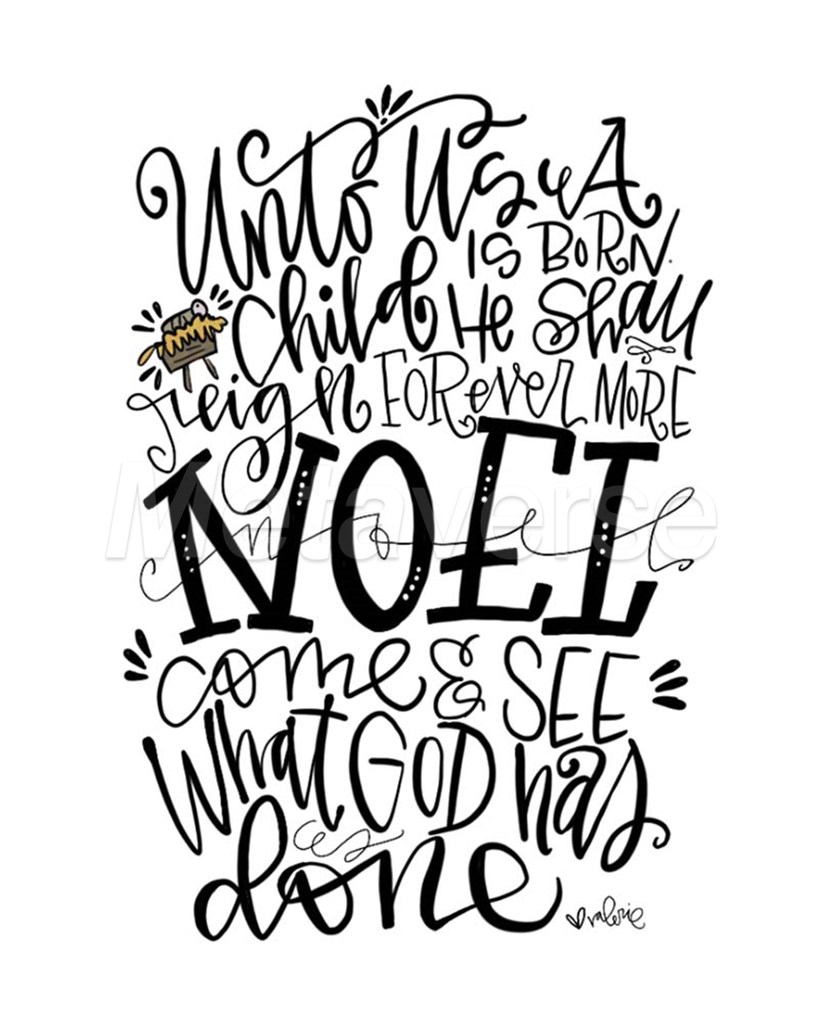 Unto Us A
Child IS BORN.
He Shall
reign FORever MORE
NOEL
noel
come & SEE
What GOD has
done
valerie
Metaverse